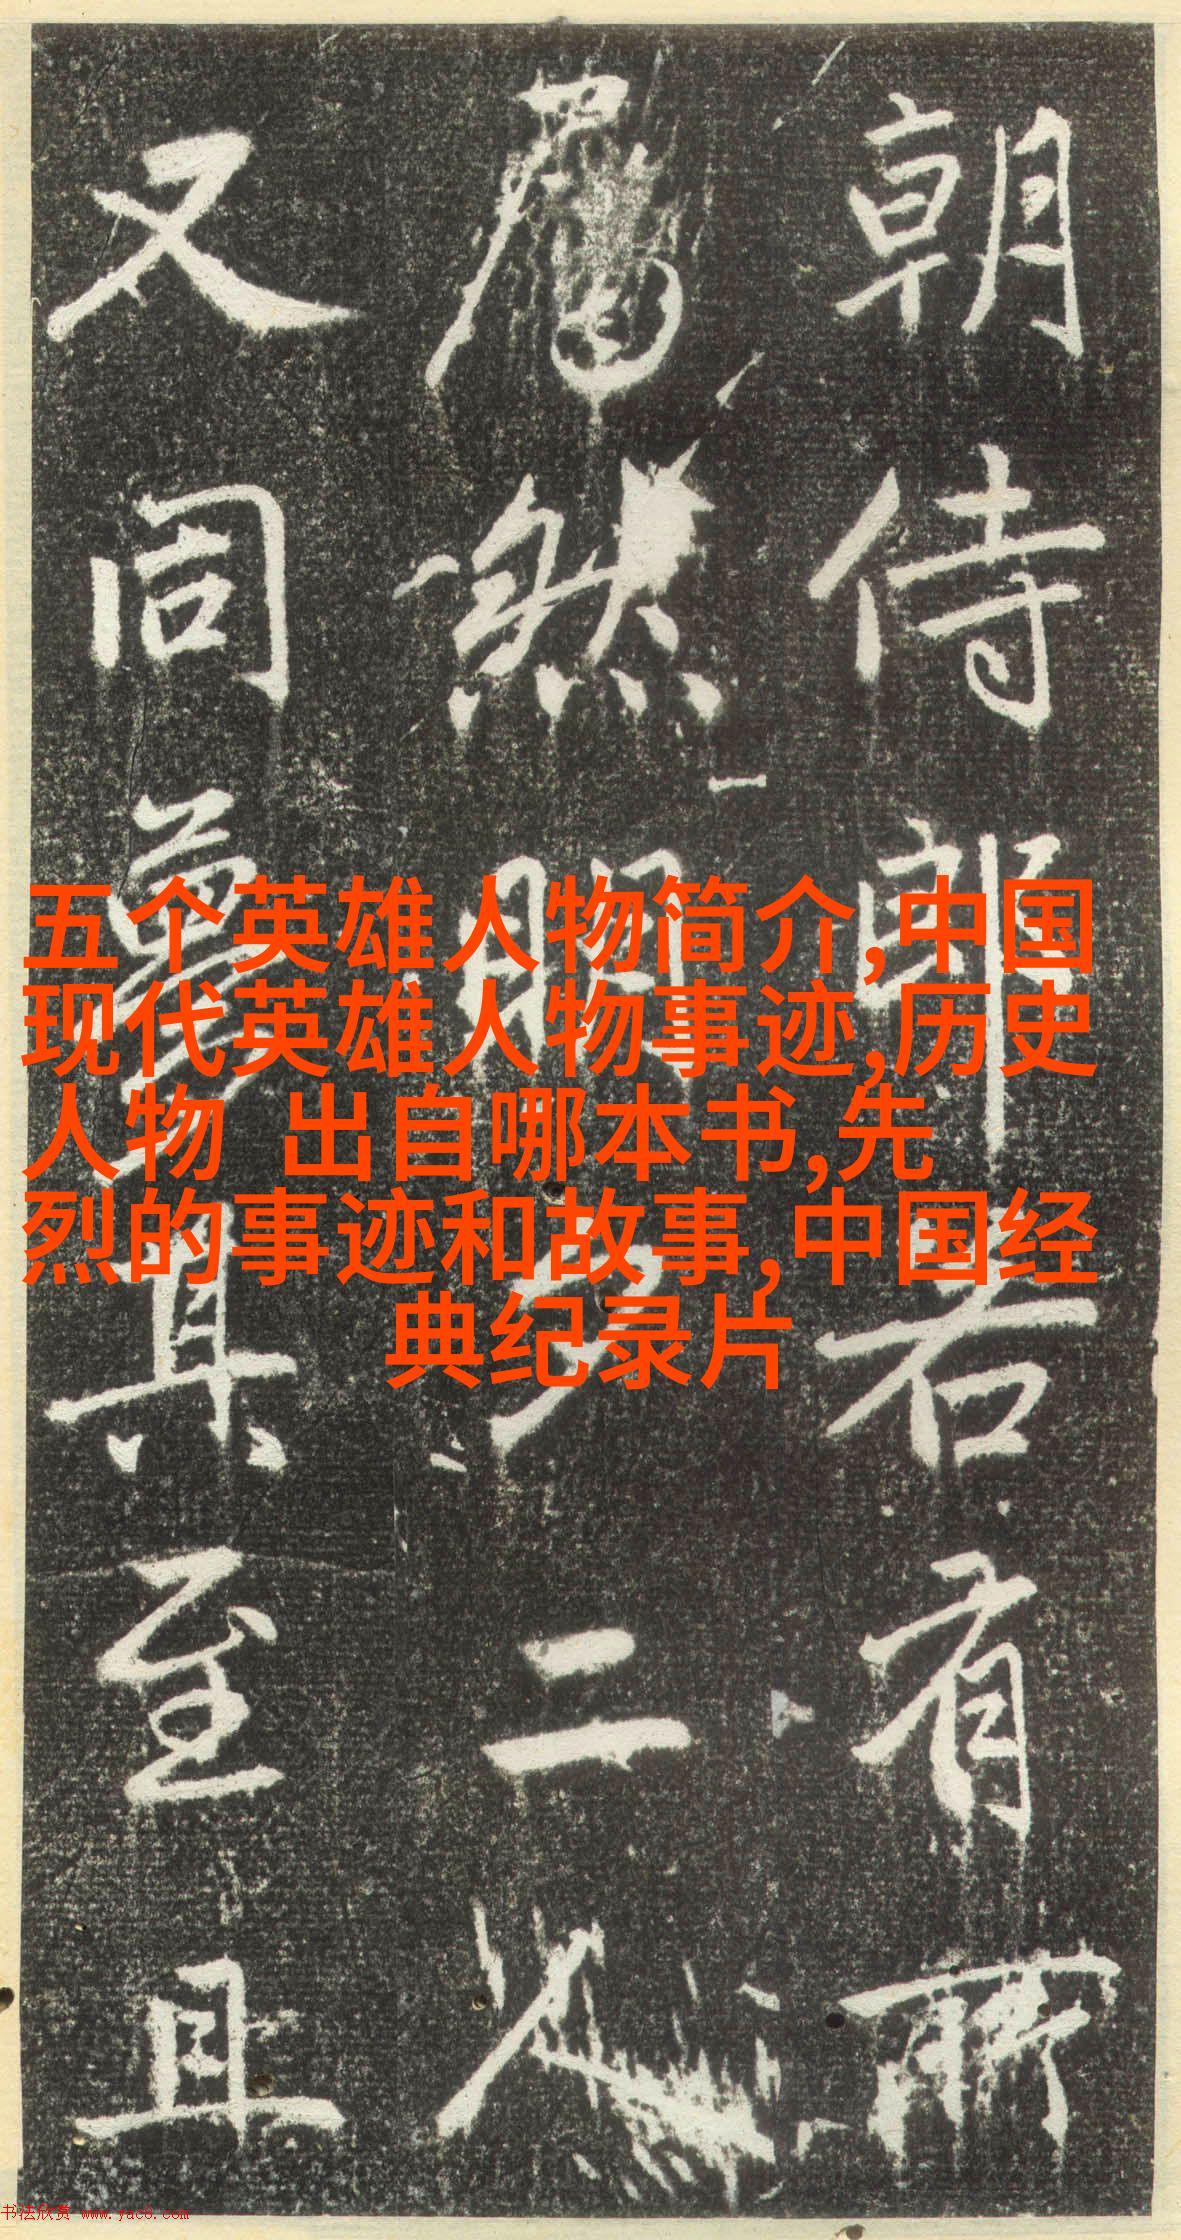 朝侍郎若有所
然二人
又同彝具至且
五个英雄人物简介,中国
现代英雄人物事迹,历史
人物 出自哪本书,先
烈的事迹和故事,中国经
典纪录片
书法欣赏 www.yac8.com